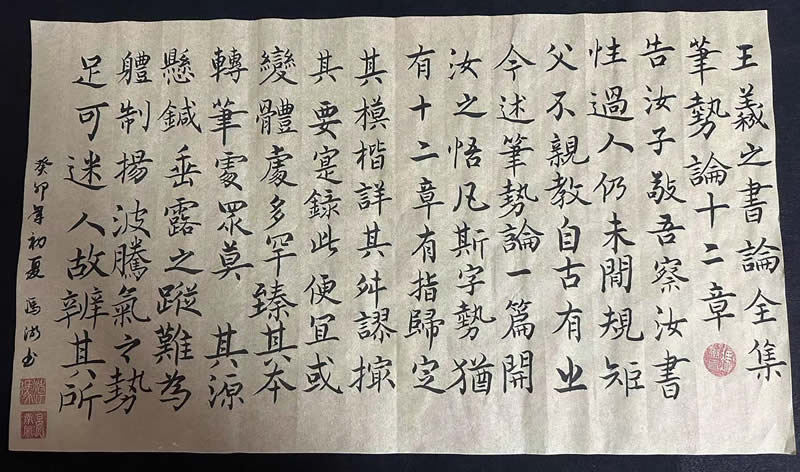 王羲之書論全集
筆勢論十二章
告汝子敬吾察汝書
性過人仍未閑規矩
父不親教自古有之
今述筆勢論一篇開
汝之悟凡斯字勢猶
有十二章有指歸定
其模楷詳其舛謬撮
其要寔錄此便宜或
變體處多罕臻其本
轉筆處眾莫其源
懸鍼垂露之蹤難為
體制揚波騰氣之勢
足可迷人故辨其所
癸卯年初夏